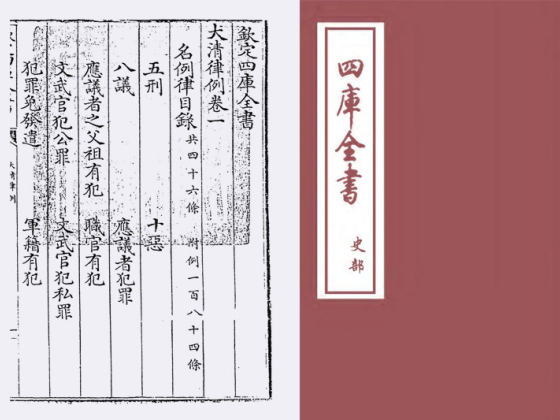 欽定四庫全書
大清律例卷一
名例律目錄 共四十六條 附例一百八十四條
五刑 十惡
八議 應議者犯罪
應議者之父祖有犯 職官有犯
文武官犯公罪 文武官犯私罪
犯罪免發遣 軍籍有犯
大清律例
四庫全書
史部